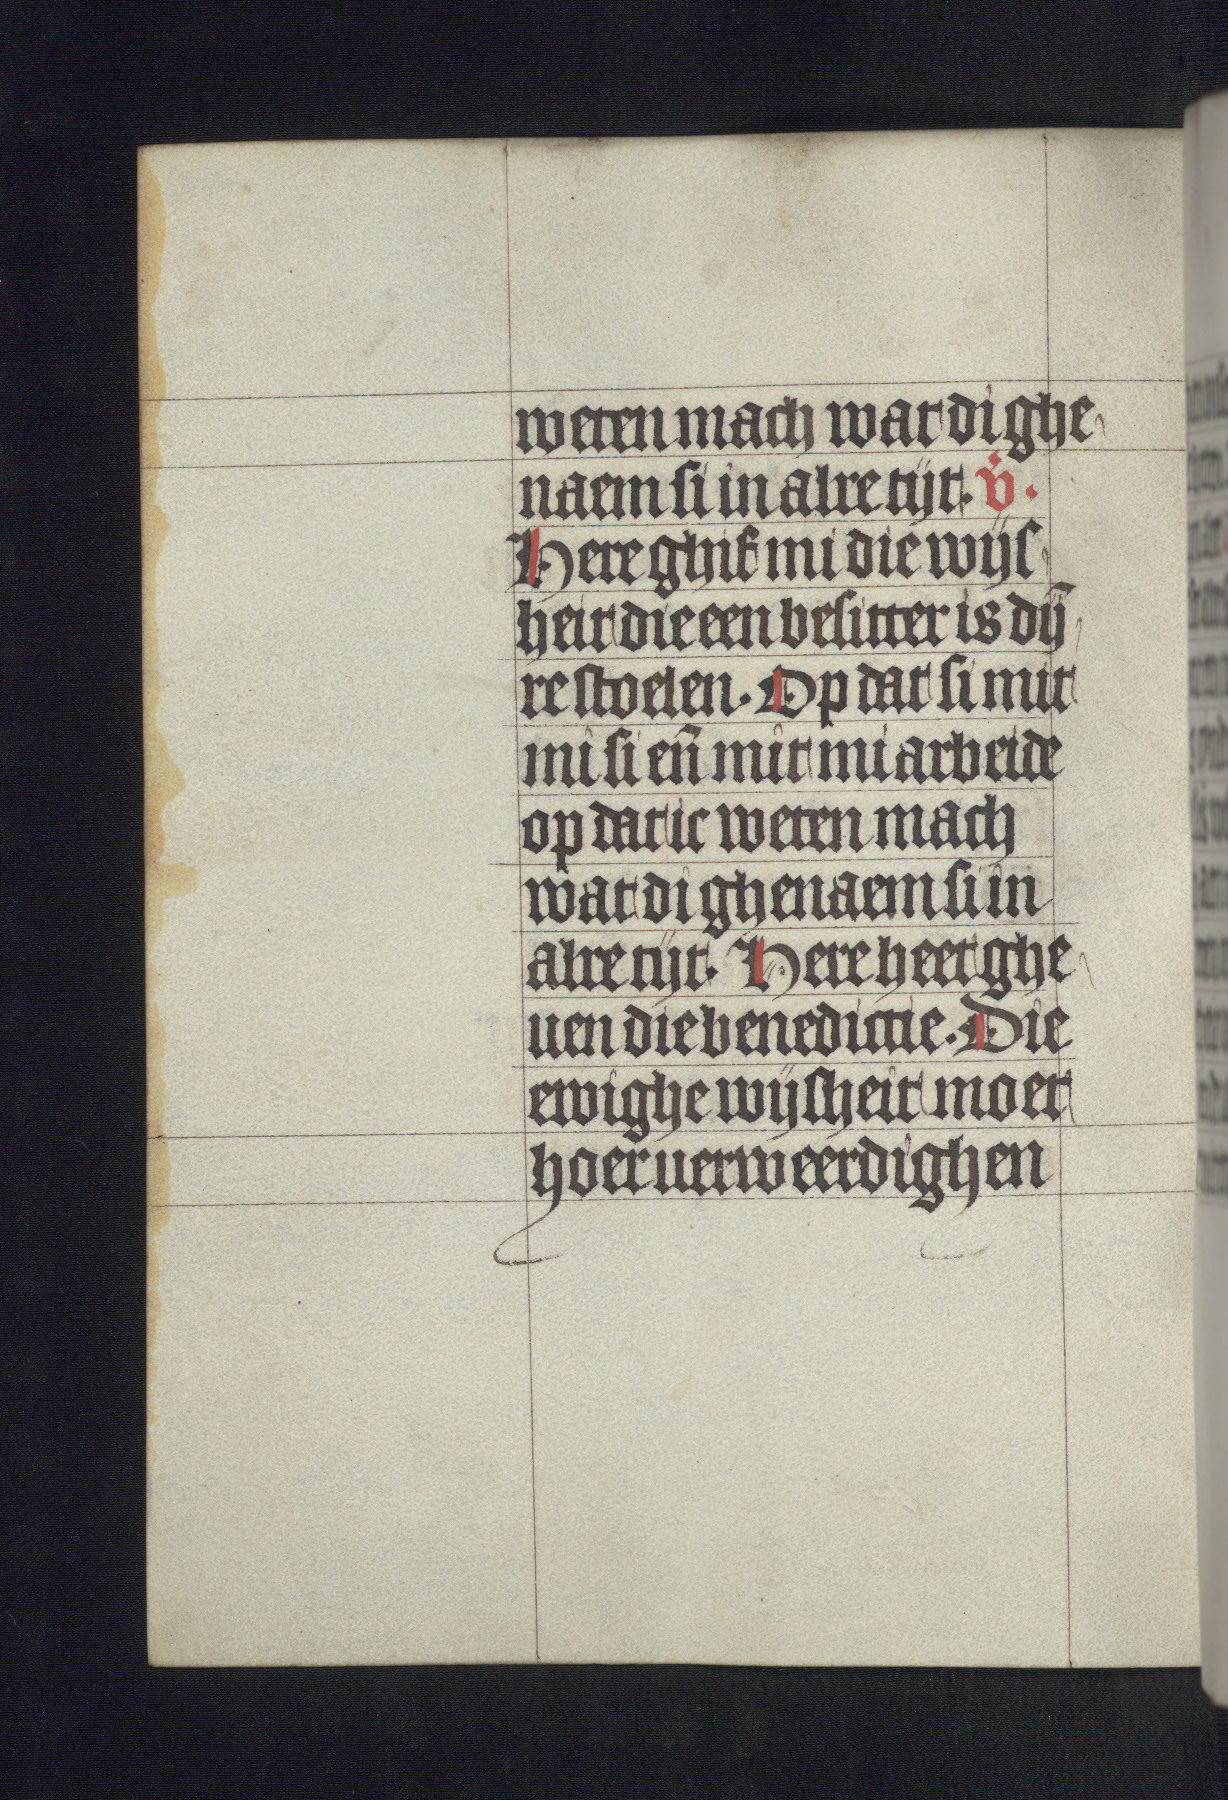 weten mach wat di ghe
naem si in alre tijt. v̊.
Here ghif mi die wijs
heit die een besitter is dij̄
re stoelen. Op dat si mit
mi si en̄ mit mi arbeide
op dat ic weten mach
wat di ghenaem si in
alre tijt. Here heet ghe
uen die benedictie. Die
ewighe wijsheit moet
hoer uerweerdighen